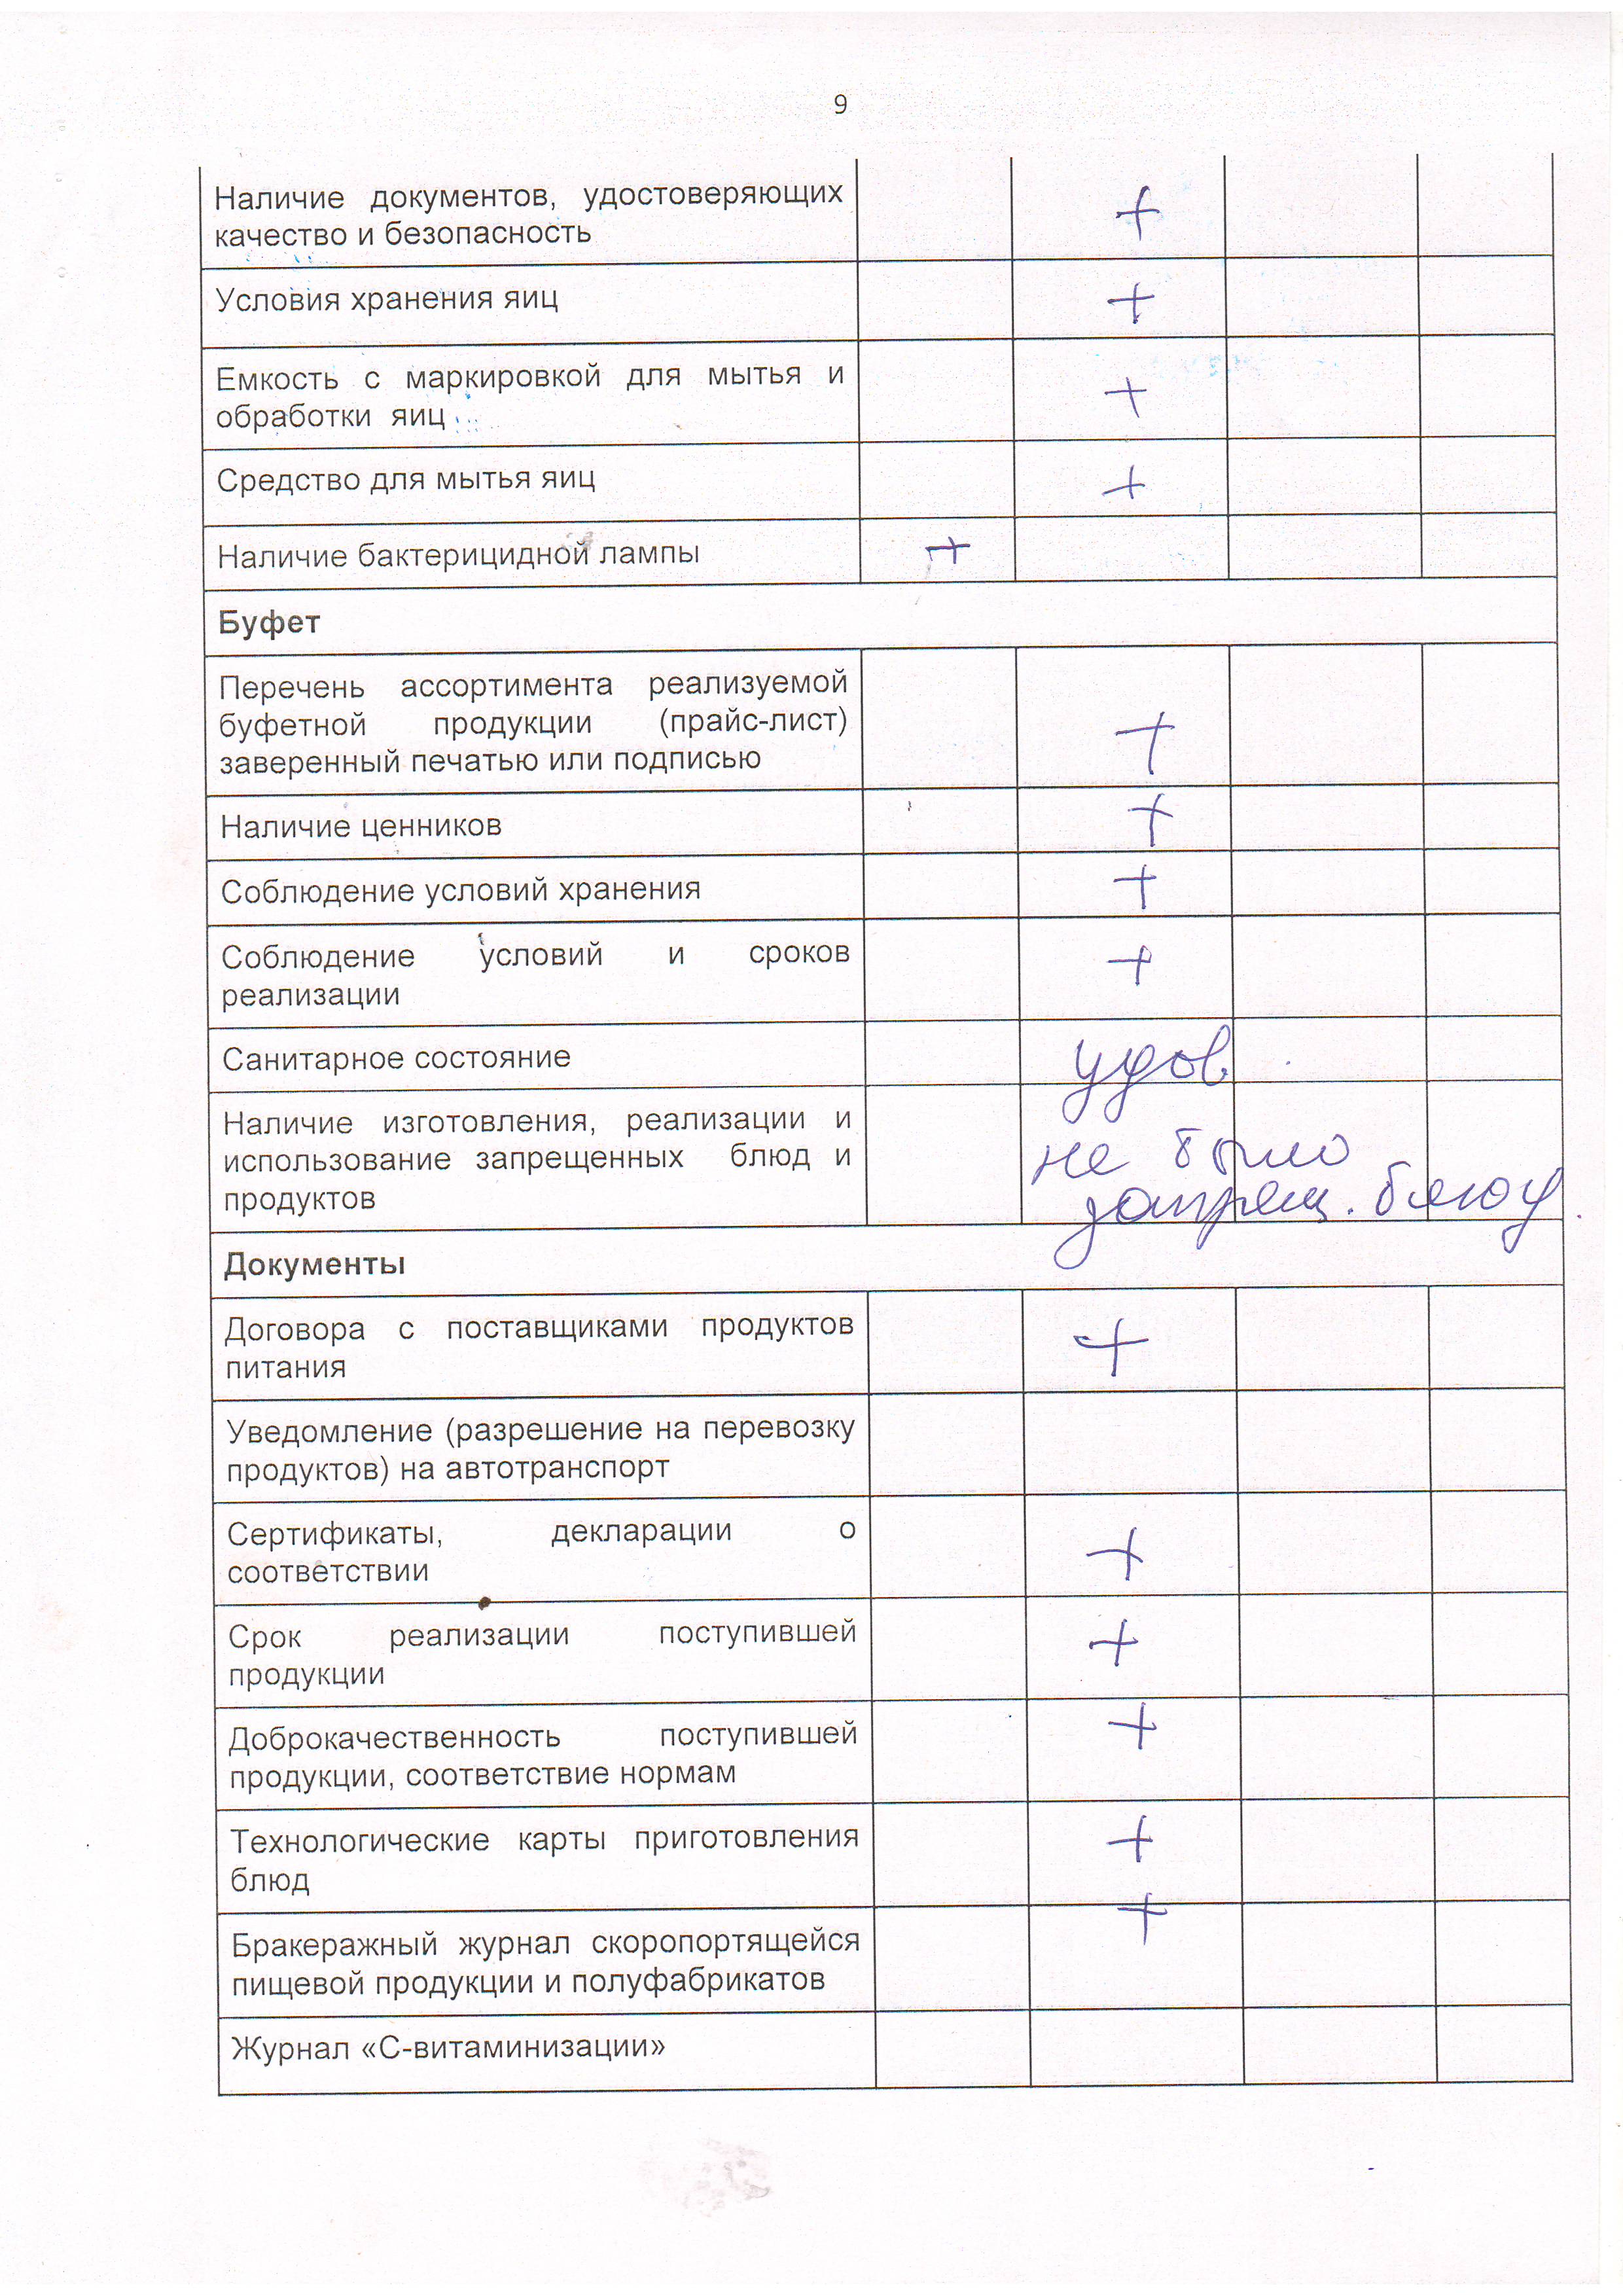 9
Наличие документов, удостоверяющих
качество и безопасность +
Условия хранения яиц +
Емкость с маркировкой для мытья и
обработки яиц +
Средство для мытья яиц +
Наличие бактерицидной лампы +
Буфет
Перечень ассортимента реализуемой
буфетной продукции (прайс-лист)
заверенный печатью или подписью +
Наличие ценников +
Соблюдение условий хранения +
Соблюдение условий и сроков
реализации +
Санитарное состояние удов.
Наличие изготовления, реализации и
использование запрещенных блюд и
продуктов
не было
запрещ. блюд.
Документы
Договора с поставщиками продуктов
питания +
Уведомление (разрешение на перевозку
продуктов) на автотранспорт
Сертификаты, декларации о
соответствии +
Срок реализации поступившей
продукции +
Доброкачественность поступившей
продукции, соответствие нормам +
Технологические карты приготовления
блюд +
Бракеражный журнал скоропортящейся
пищевой продукции и полуфабрикатов +
Журнал «С-витаминизации»